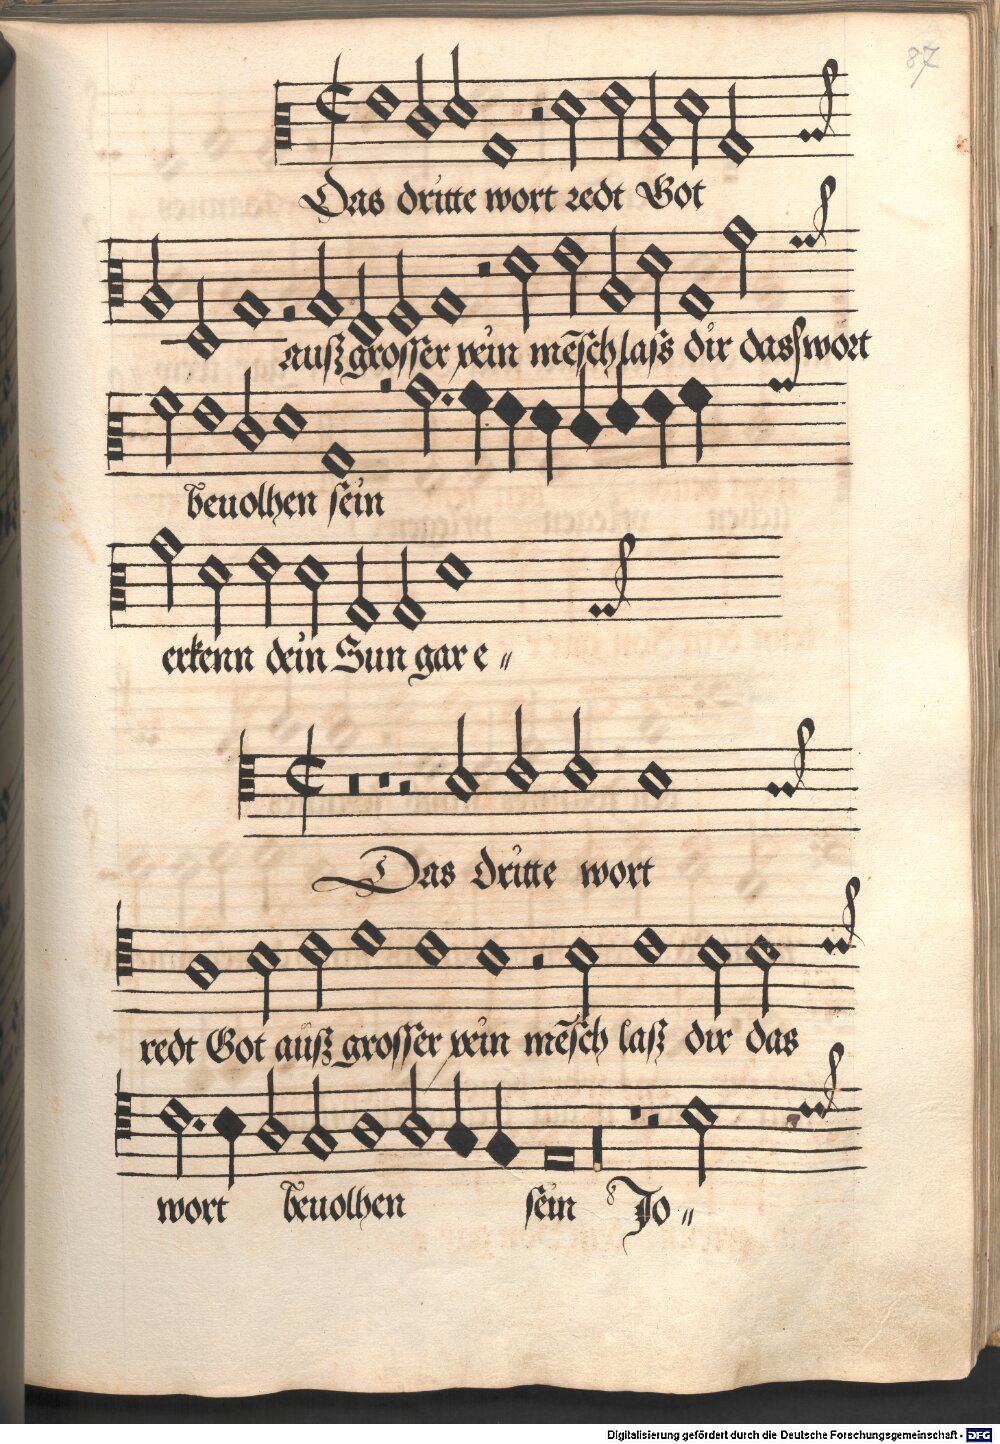 87
Das dritte wort redt Got
auß grosser pein mẽsch laß dir das wort
beuolhen sein
erkenn dein Sun gar e〃
Das dritte wort
redt Got auß grosser pein mẽsch laß dir das
wort beuolhen sein Jo〃
Digitalisierung gefördert durch die Deutsche Forschungsgemeinschaft - DFG